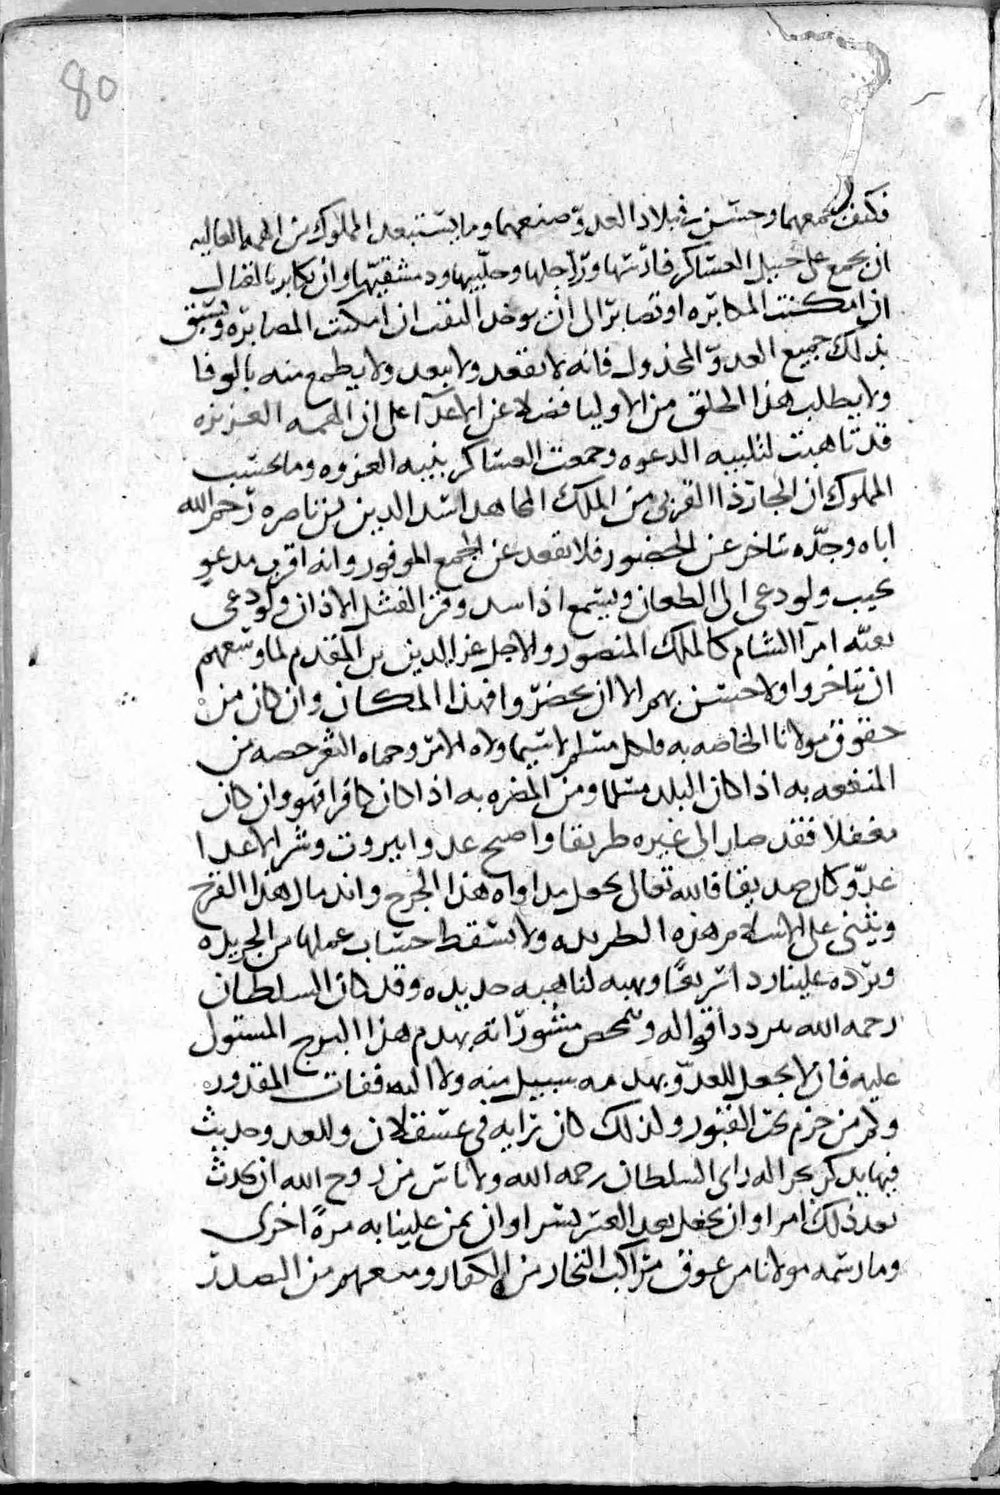 80
فكيف بجمعهما وحسن في بلاد العدو صنعهما وما يستبعد المملوك من الهمة العالية
ان يجمع على جبيل العساكر فارسها وراجلها وحلبيها ودمشقيها وان يكابر بالقتال
ان امكنت المكابره او تصابر الى ان يوخذ النقب ان امكنت المصابره ويستبق
بذلك جميع العدو المخذول فانه لا يقعد ولا يبعد ولا يطمع منه بالوفا
ولا يطلب هذا الخلق من الاوليا فضلا عن الاعدا على ان الهمه العزيزه
قد تاهبت لتلبيه الدعوه وجمعت العساكر بنيه الغزوه وما يحتسب
المملوك ان الجار ذا القربى من الملك المجاهد اسد الدين بن ناصره رحم الله
اباه وجده يتاخر عن الحضور فلا يقعد عن الجمع الموفور وانه اقرب مدعو
يجيب ولو دعي الى الطعان ويسمع اذا سد وقر الفشل الاذان ولو دعي
بعبه امرا الشام كالملك المنصور والاجل عز الدين بن المقدم لما وسعهم
ان يتاخروا ولا حسن بهم الا ان يحضروا فهذا المكان وان كان من
حقوق مولانا الخاصه به فلكل مسلم لا سيما ولاه الامر وحماه الثغر حصه من
المنفعه به اذا كان البلد مسلما ومن المضره به اذا كان كافرا فهو وان كان
مغفلا فقد صار الى غيره طريقا واصبح عدوا بيروت وشر الاعدا
عدو كان صديقا فالله تعالى يجعل مداواه هذا الجرح واندمال هذا القرح
ويثني على الاسلام هذه الطريده ولا يسقط حساب عملها من الجريده
ويرده علينا ردا شريفا ويهبه لنا هبه جديده وقد كان السلطان
رحمه الله يردد اقواله ويمحص مشوراته بهدم هذا البرج المستول
عليه فان لا يجعل للعدو بهدمه سبيل منه ولا اليه ففات المقدور
وكم من حزم تحت القبور ولذلك كان رايه في عسقلان وللعدو حديث
فيها يذكر بحزاله راي السلطان رحمه الله ولا ناس من روح الله ان يحدث
بعد ذلك امرا وان يجعل بعد العسر يسرا وان يمن علينا به مرة اخرى
وما رسمه مولانا من عوق مراكب التجار من الكفار ومنعهم من الصدر